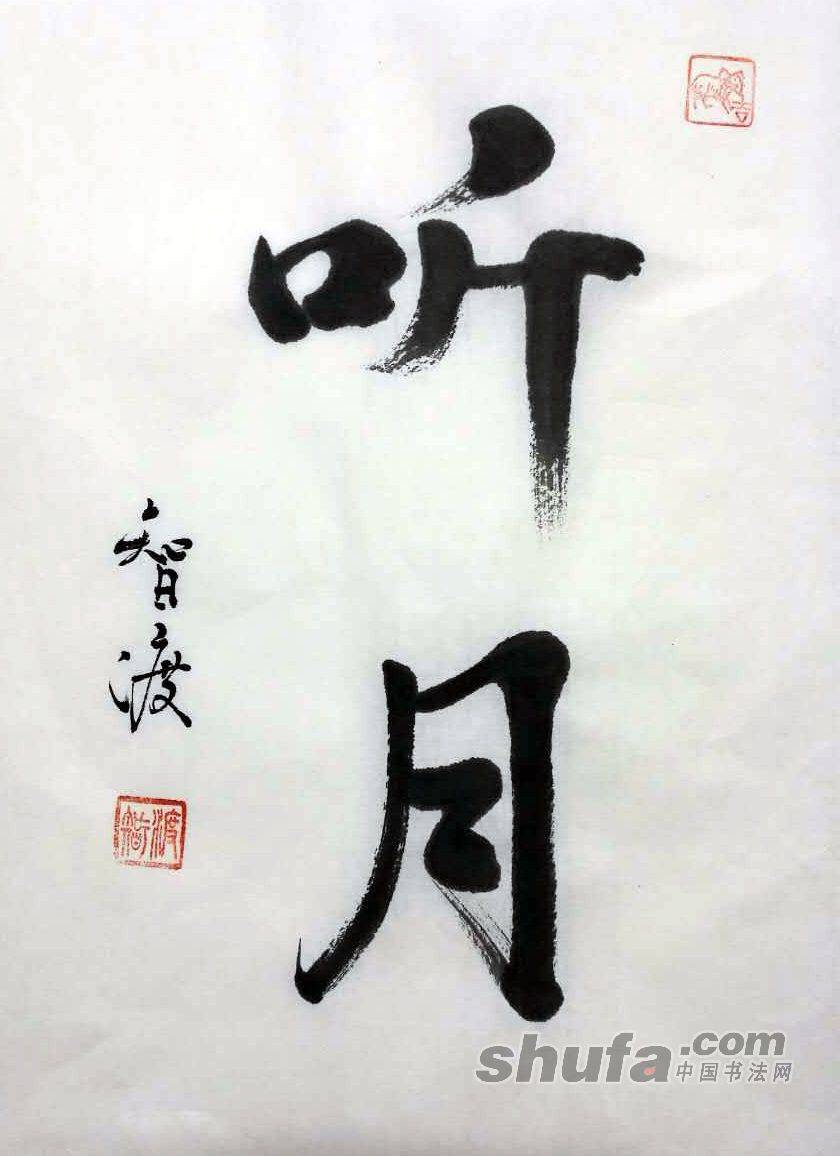 听月
智渡
shufa.com
中国书法网